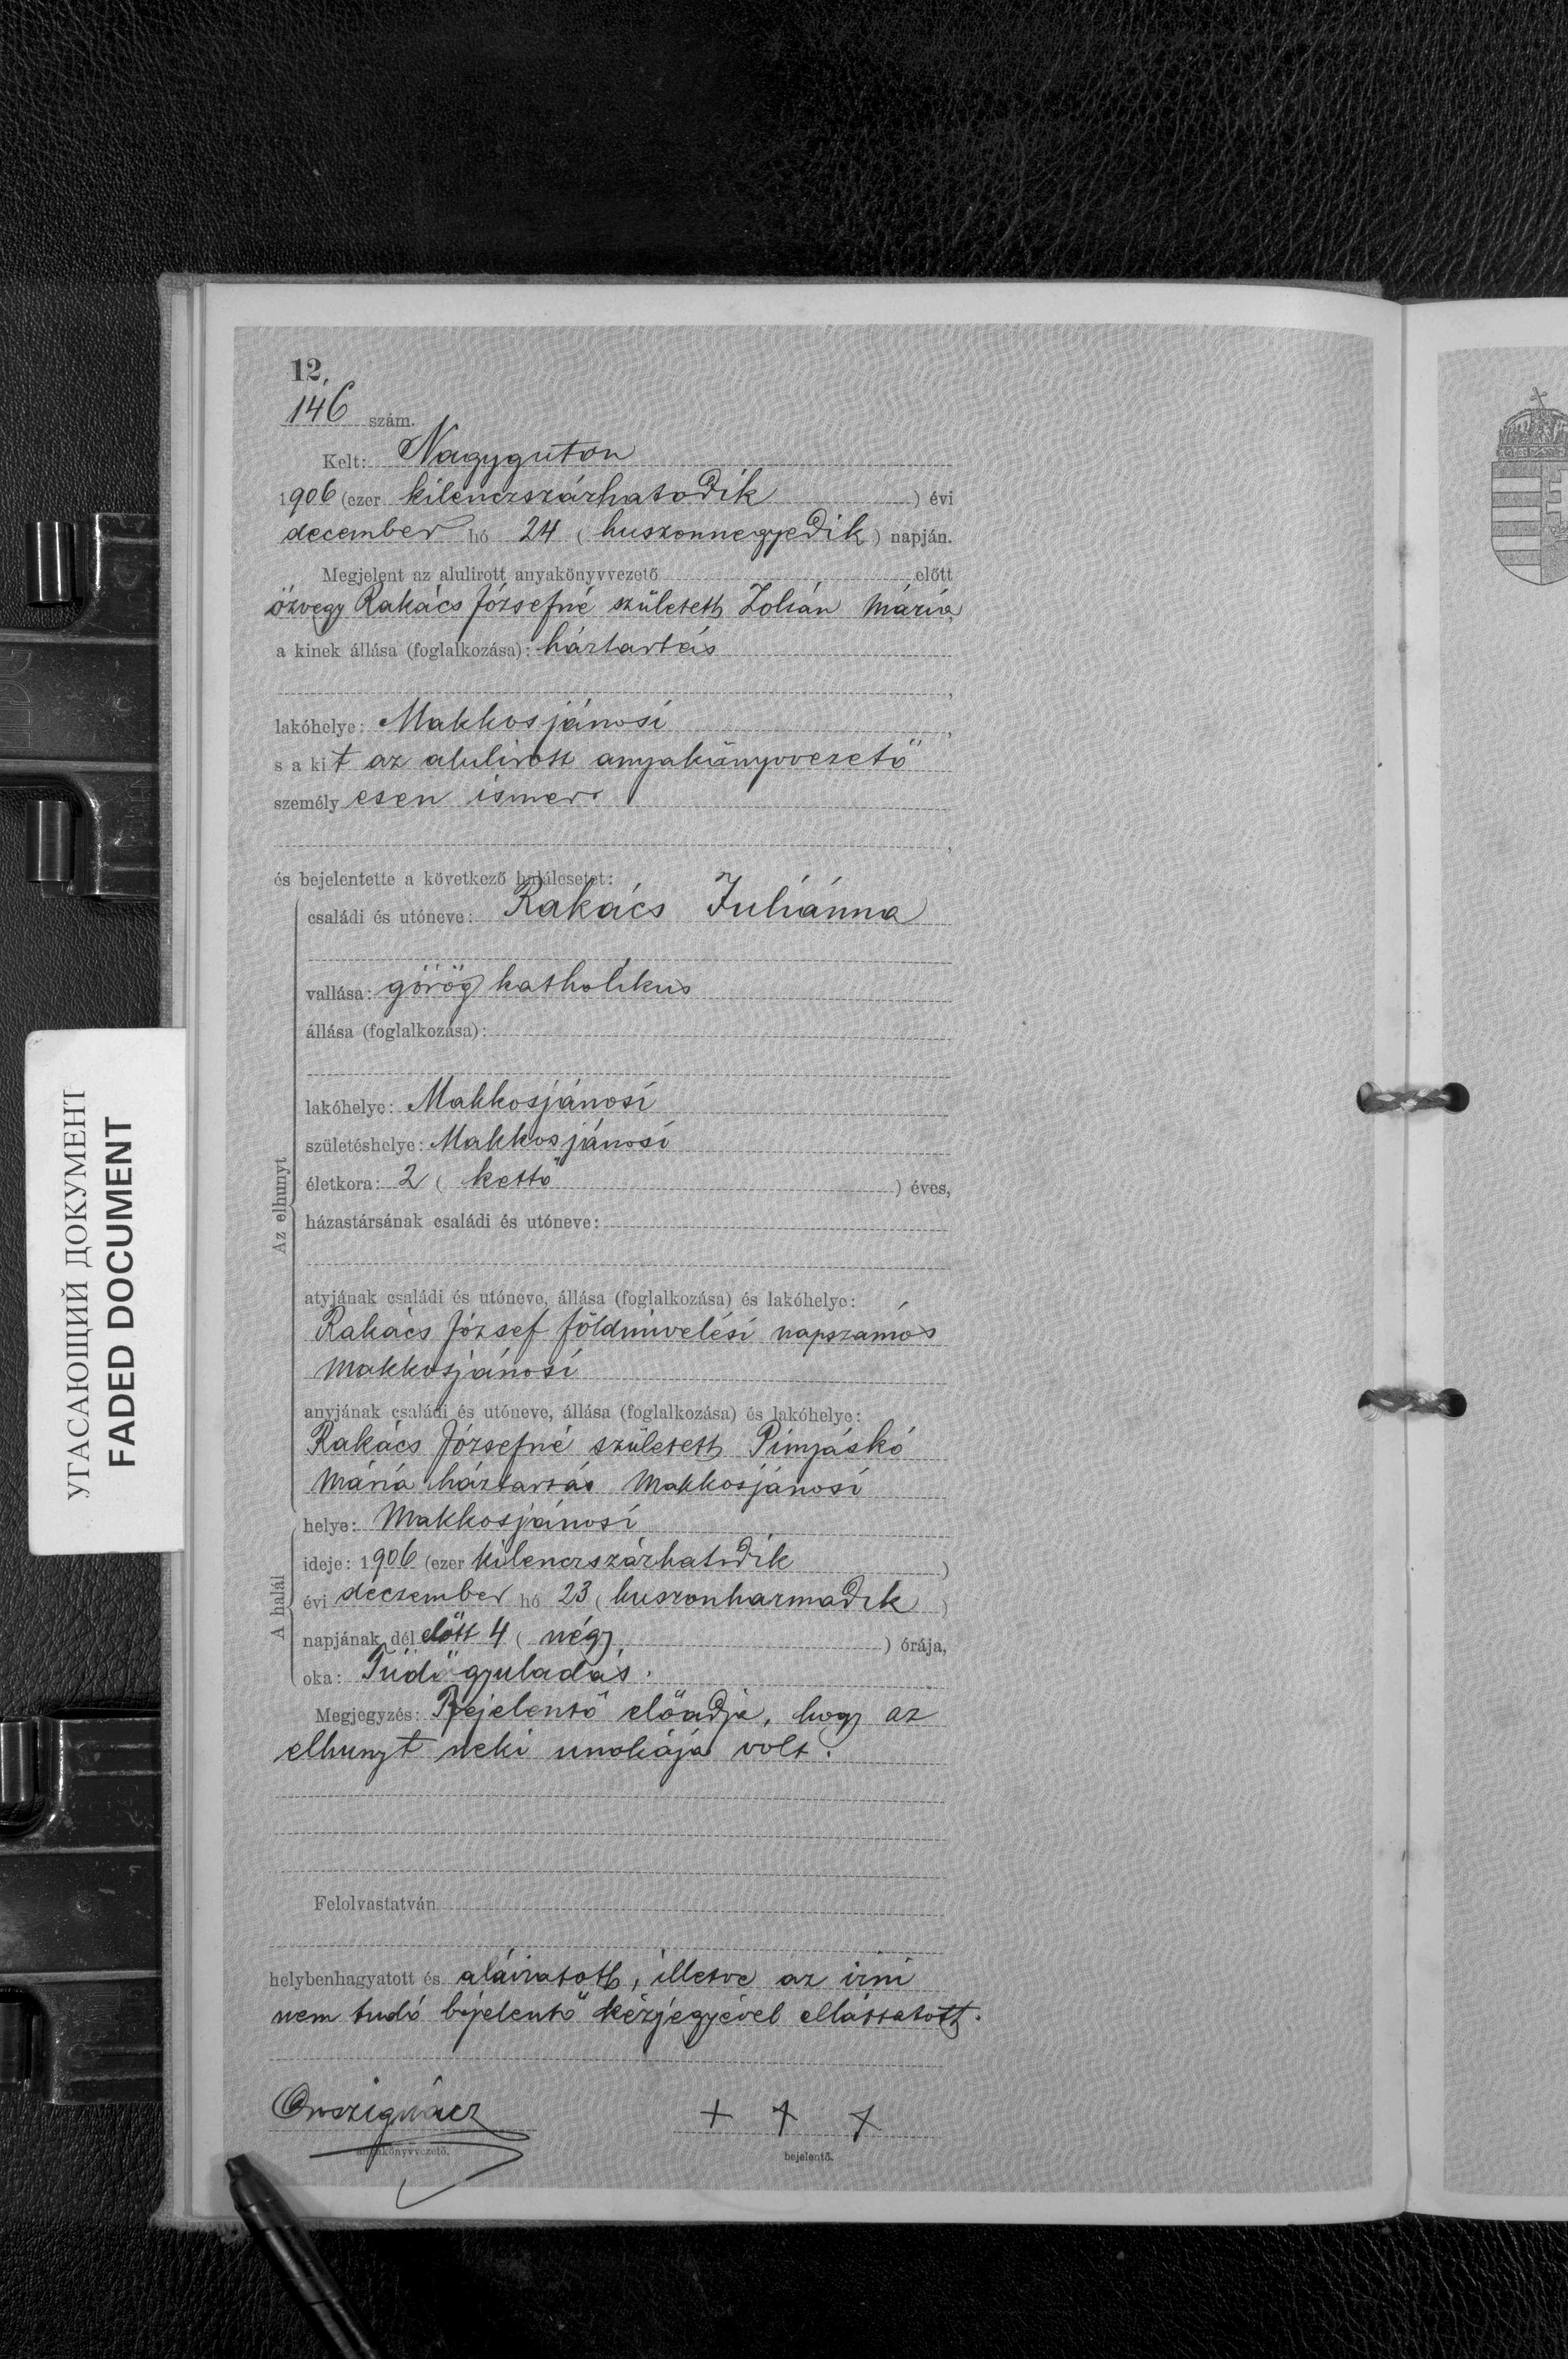 12.
146 szám.
Kelt: Nagyguton
1906 (ezer kilenczszázhatodik) évi
december hó 24 (huszonnegyedik) napján.
Megjelent az alulirott anyakönyvvezető előtt
özvegy Rakács Józsefné született Zoltán Mária,
a kinek állása (foglalkozása): háztartás
,
lakóhelye: Makkosjánosi,
s a kit az alulirott anyakönyvvezető
személyesen ismer
,
és bejelentette a következő halálesetet:
Az elhunyt
családi és utóneve: Rakács Juliánna
vallása: görög katholikus
állása (foglalkozása):
lakóhelye: Makkosjánosi
születéshelye: Makkosjánosi
életkora: 2 (kettő) éves,
házastársának családi és utóneve:
atyjának családi és utóneve, állása (foglalkozása) és lakóhelye:
Rakács József földmivelési napszámos
Makkosjánosi
anyjának családi és utóneve, állása (foglalkozása) és lakóhelye:
Rakács Józsefné született Pinyáskó
Mária háztartás Makkosjánosi
A halál
helye: Makkosjánosi
ideje: 1906 (ezer kilenczszázhatodik)
évi deczember hó 23 (huszonharmadik)
napjának dél előtt 4 (négy) órája,
oka: Tüdőgyuladás.
Megjegyzés: Bejelentő előadja, hogy az
elhunyt neki unokája volt.
Felolvastatván
helybenhagyatott és aláiratott, illetve az irni
nem tudó bejelentő kézjegyével elláttatott.
Orosz Ignácz + + +
anyakönyvvezető. bejelentő.
УГАСАЮЩИЙ ДОКУМЕНТ
FADED DOCUMENT